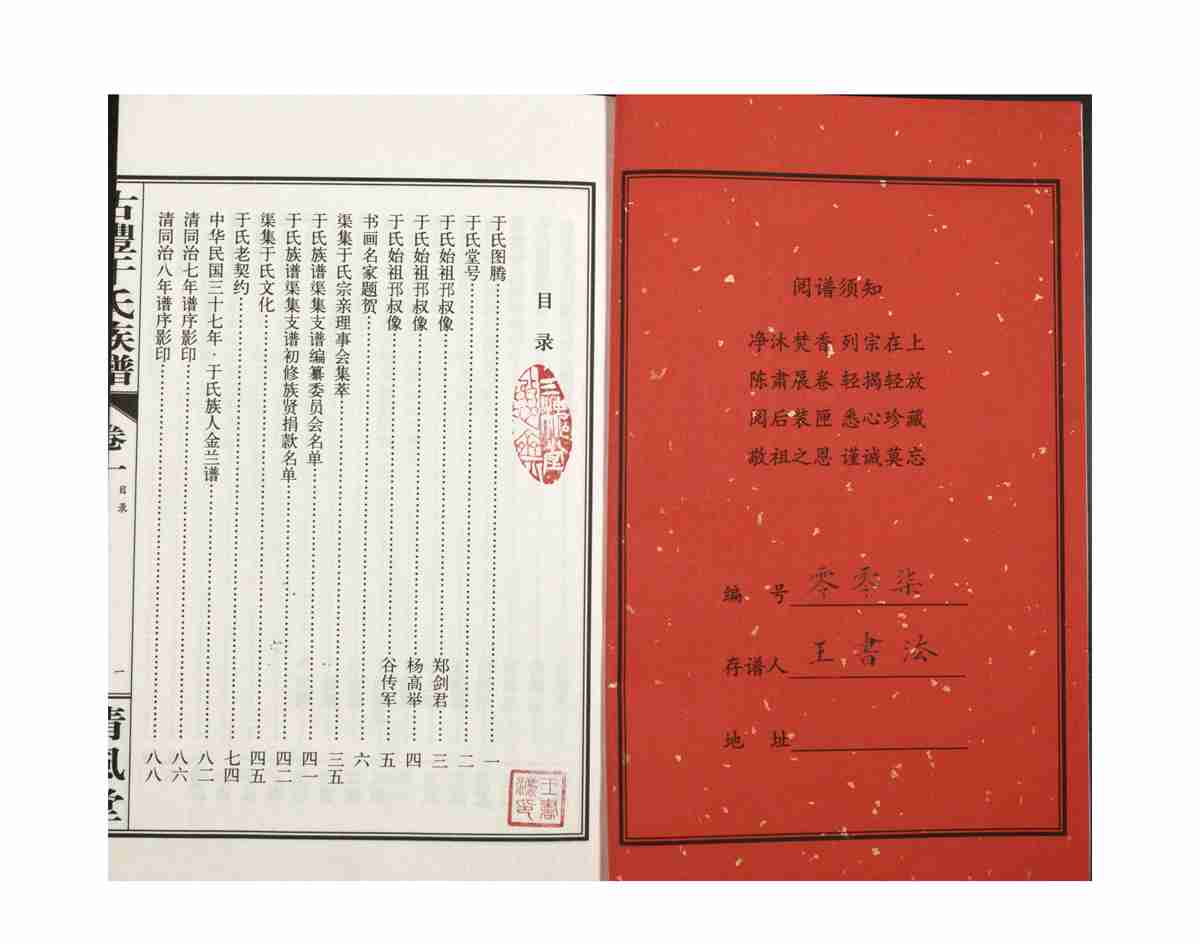 阅谱须知
净沐焚香 列宗在上
陈肃展卷 轻揭轻放
阅后装匣 悉心珍藏
敬祖之恩 谨诚莫忘
编 号 零零柒
存谱人 王書法
地 址
目录
于氏图腾 一
于氏堂号 二
于氏始祖邘叔像 郑剑君 三
于氏始祖邘叔像 杨高举 四
于氏始祖邘叔像 谷传军 五
书画名家题贺 六
渠集于氏宗亲理事会集萃 三五
于氏族谱渠集支谱编纂委员会名单 四一
于氏族谱渠集支谱初修族贤捐款名单 四二
渠集于氏文化 四五
于氏老契约 七四
中华民国三十七年·于氏族人金兰谱 八二
清同治七年谱序影印 八六
清同治八年谱序影印 八八
古豐于氏族譜
卷一
目录
一
清風堂
王書法印